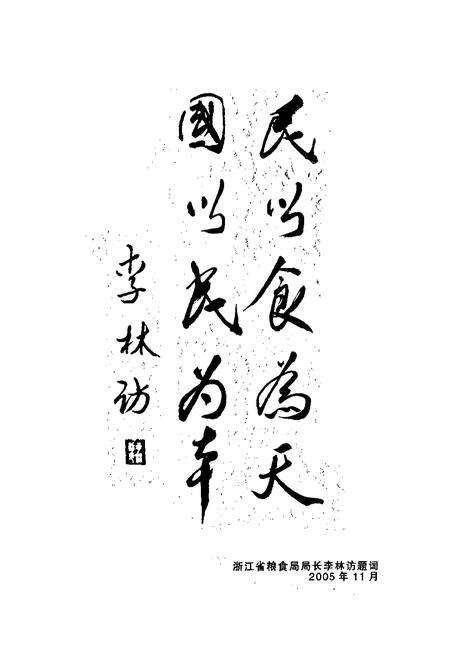 民以食為天
國以民为本
李林访
浙江省粮食局局长李林访题词
2005年11月